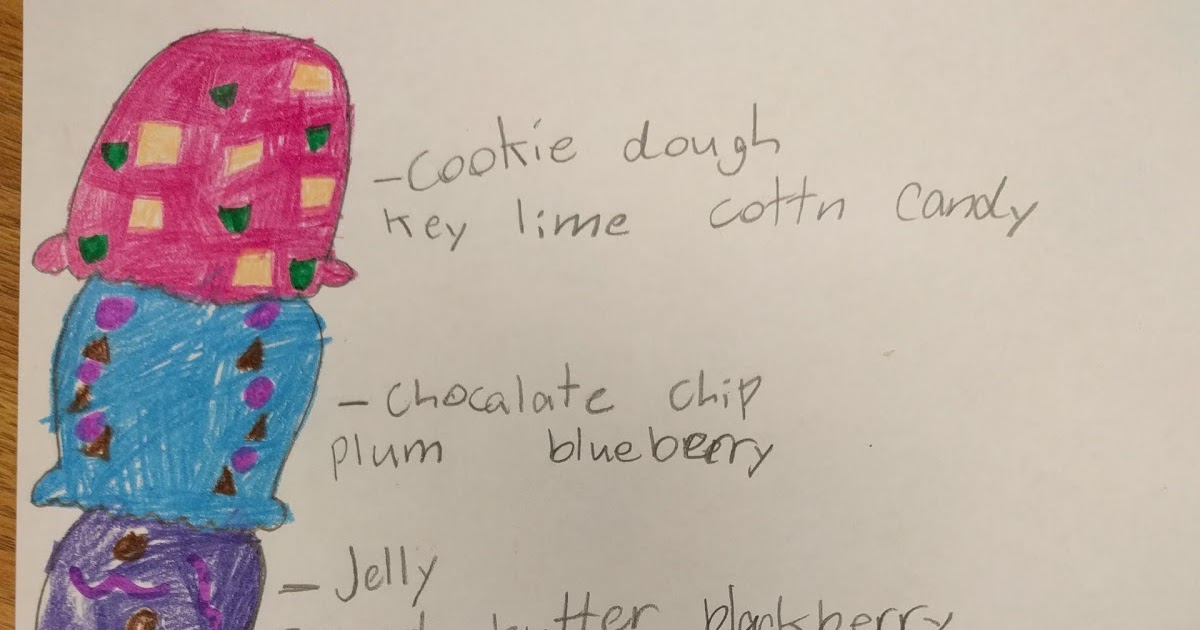 -Cookie dough
Key lime cottn candy
-Chocalate chip
plum blueberry
-Jelly
butter blackberry